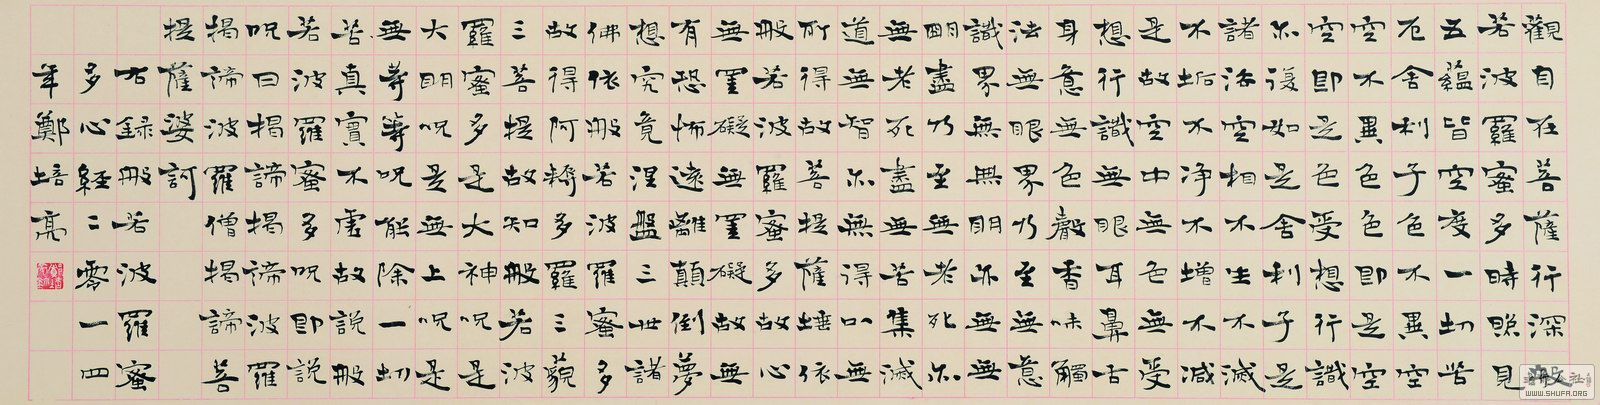 觀自在菩薩行深般
若波羅蜜多時照見
五蘊皆空度一切苦
厄舍利子色不異空
空不異色色即是空
空即是色受想行識
亦復如是舍利子是
諸法空相不生不滅
不垢不淨不增不減
是故空中無色無受
想行識無眼耳鼻舌
身意無色聲香味觸
法無眼界乃至無意
識界無無明亦無無
明盡乃至無老死亦
無老死盡無苦集滅
道無智亦無得以無
所得故菩提薩埵依
般若波羅蜜多故心
無罣礙無罣礙故無
有恐怖遠離顛倒夢
想究竟涅盤三世諸
佛依般若波羅蜜多
故得阿耨多羅三藐
三菩提故知般若波
羅蜜多是大神呪是
大明呪是無上呪是
無等等呪能除一切
苦真實不虛故說般
若波羅蜜多呪即說
呪曰揭諦揭諦波羅
揭諦波羅僧揭諦菩
提薩婆訶
右錄般若波羅蜜
多心經二零一四
年鄭培亮
WWW.SHUFA.ORG